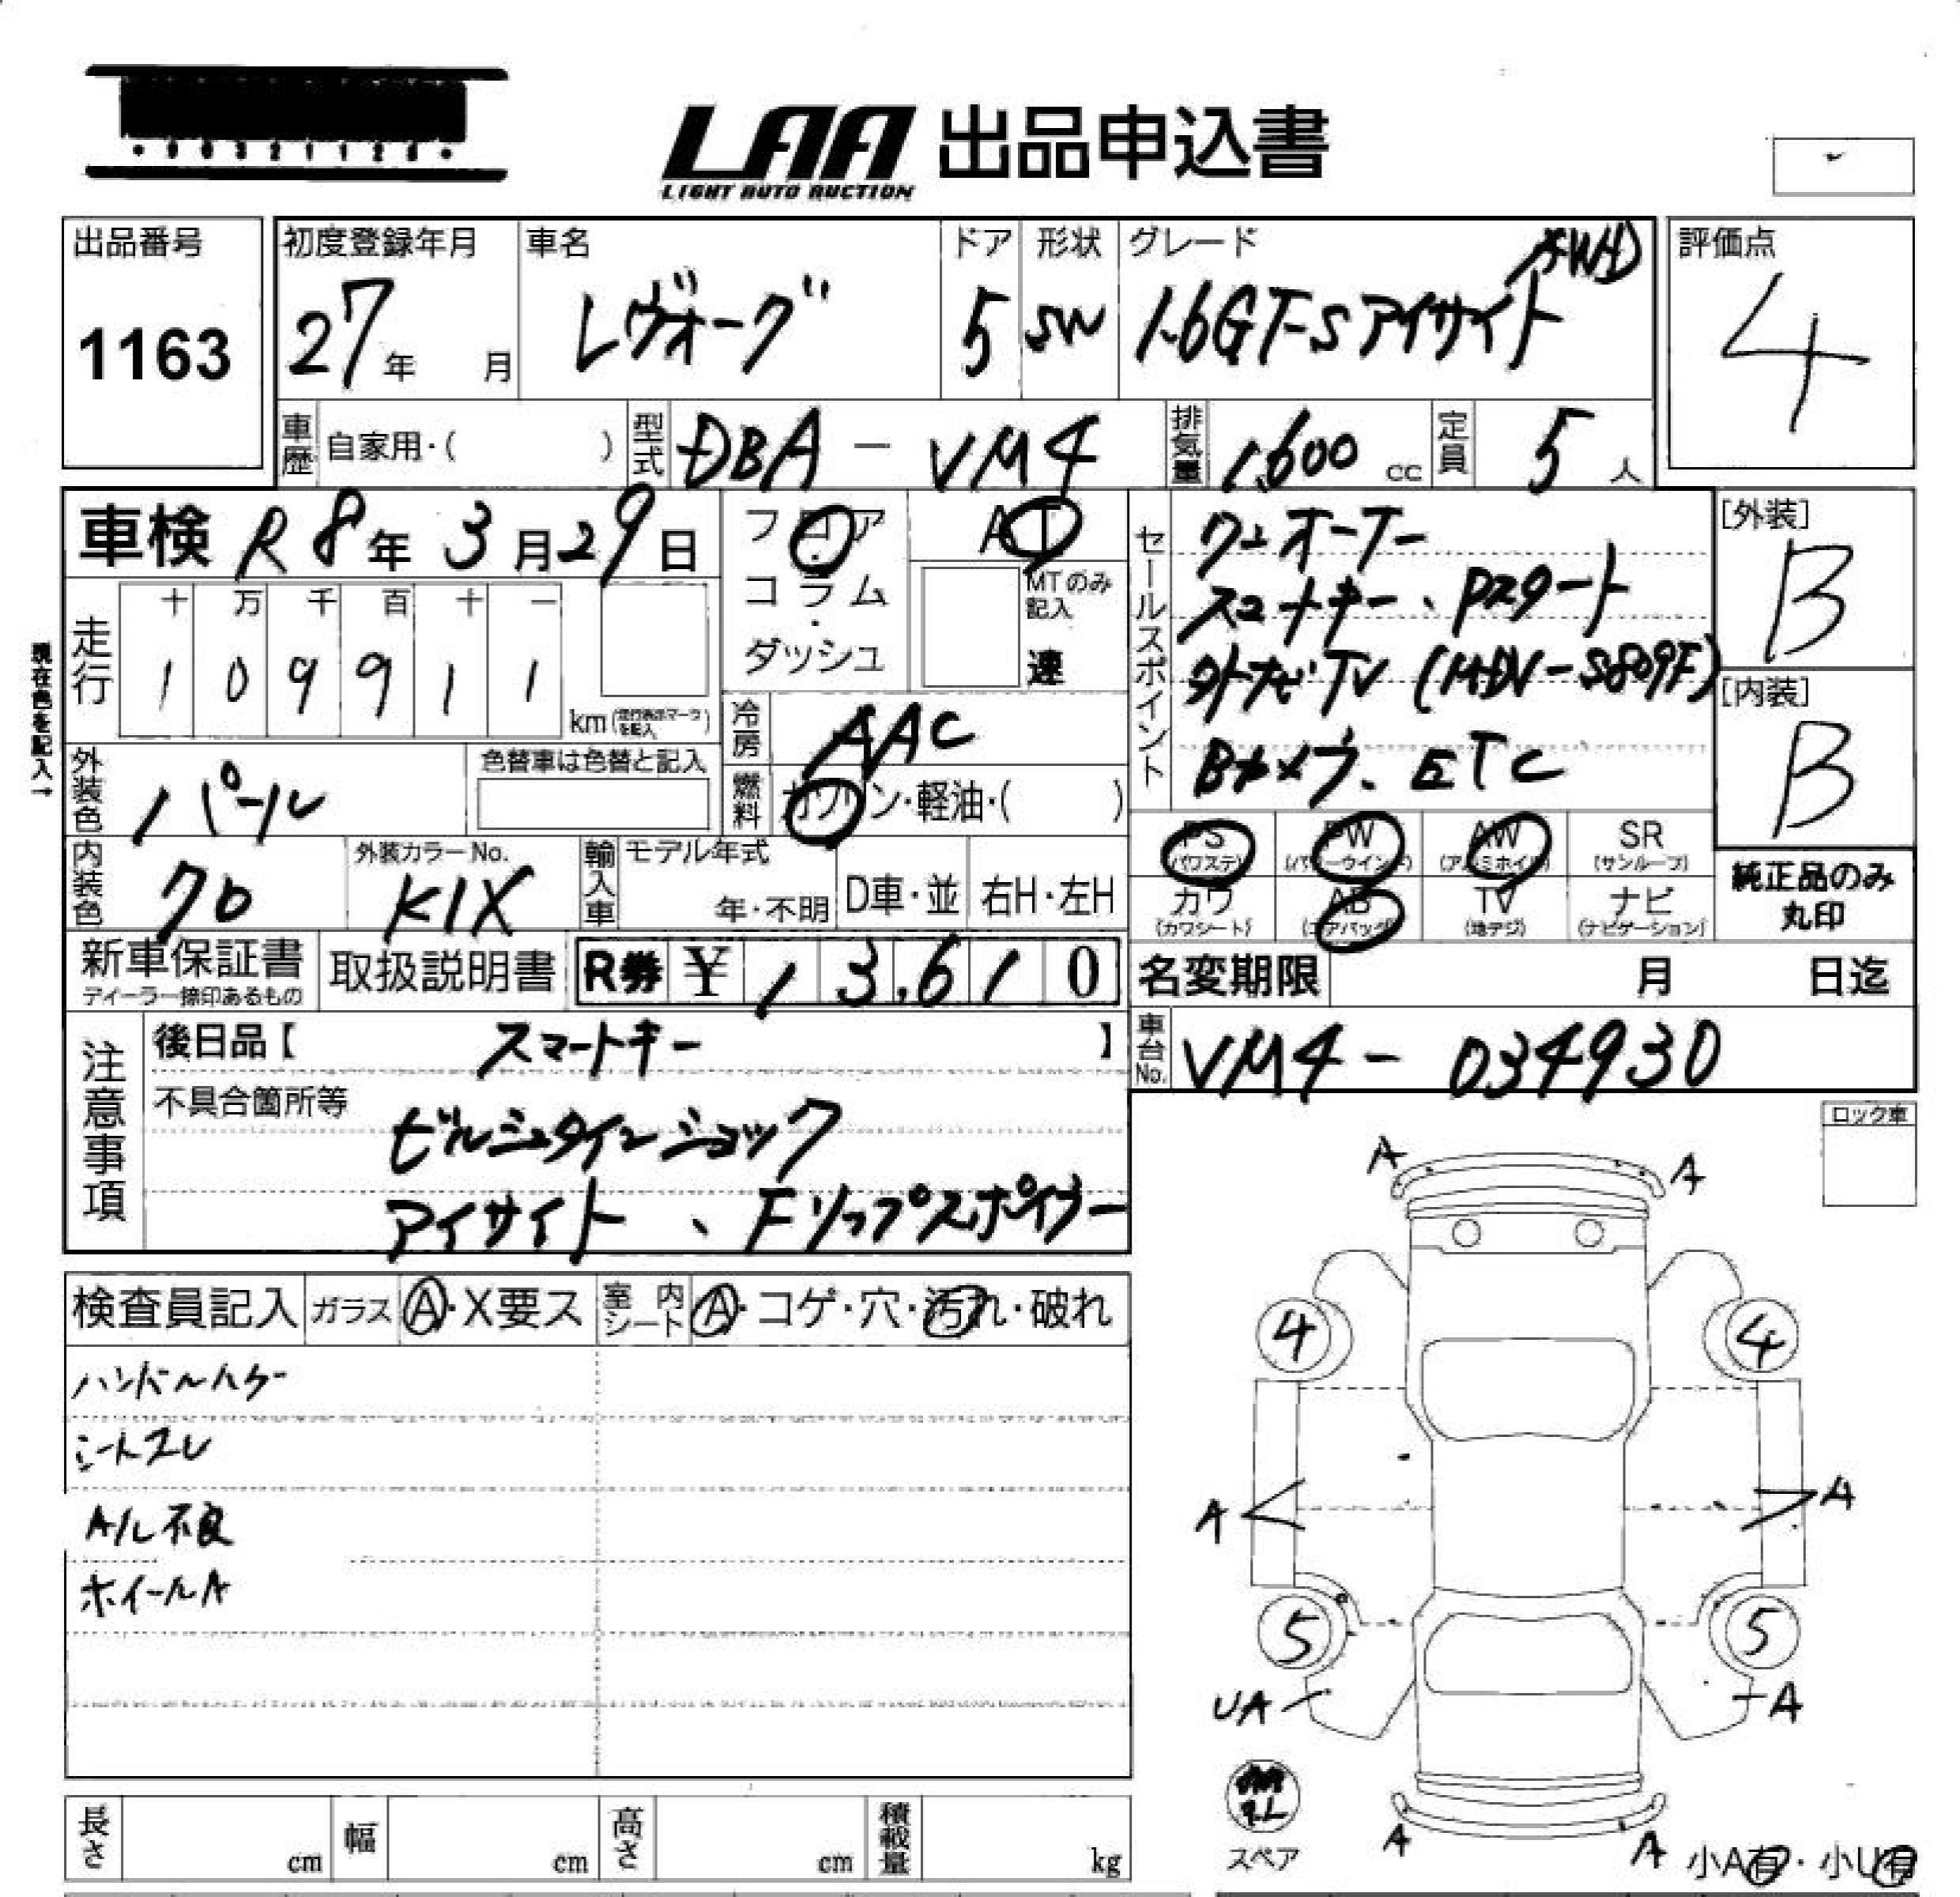 LAA 出品申込書
LIGHT AUTO AUCTION
出品番号
1163
初度登録年月
27年 月
車名
レヴォーグ
ドア
5
形状
SW
グレード
AWD
1.6GT-Sアイサイト
評価点
4
車歴 自家用・( )
型式 DBA - VM4
排気量 1,600 cc
定員 5 人
車検 R 8年 3月 29日
フロア・コラム・ダッシュ
AT
MTのみ記入
速
走行
十 万 千 百 十 一
1 0 9 9 1 1
km (走行表示マークを記入)
現在色を記入→
冷房 AAC
燃料 ガソリン・軽油・( )
外装色 パール
色替車は色替と記入
内装色 クロ
外装カラーNo. K1X
輸入車 モデル年式 年・不明
D車・並
右H・左H
セールスポイント
ワンオーナー
スマートキー、Pスタート
外ナビTV (MDV-S809F)
Bカメラ、ETC
[外装]
B
[内装]
B
PS (パワステ)
PW (パワーウインド)
AW (アルミホイル)
SR (サンルーフ)
カワ (カワシート)
AB (エアバック)
TV (地デジ)
ナビ (ナビゲーション)
純正品のみ丸印
新車保証書
ディーラー捺印あるもの
取扱説明書
R券 ¥ 13,610
名変期限 月 日迄
車台No. VM4 - 034930
注意事項
後日品【 スマートキー 】
不具合箇所等
ビルシュタインショック
アイサイト、Fリップスポイラー
ロック車
検査員記入 ガラス A・X要ス
室内シート A・コゲ・穴・汚れ・破れ
ハンドルハゲ
シートスレ
A/L不良
ホイールA
A A
4 4
A A
5 5
UA A
スペア
A A
小A有・小U有
長さ cm
幅 cm
高さ cm
積載量 kg